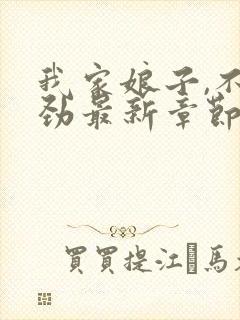 我家娘子,不
劲最新章節
買買提江·馬